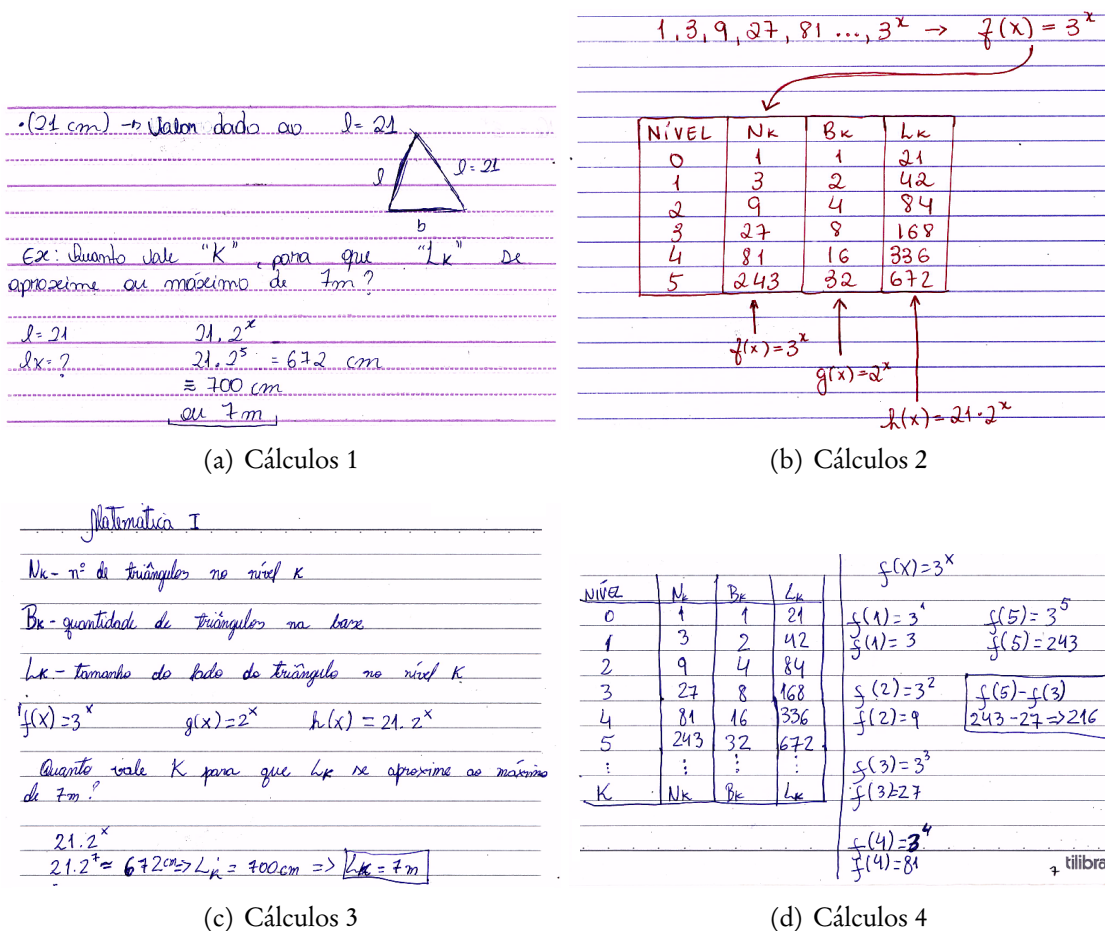 •(21 cm) → Valor dado ao l = 21
l
l = 21
b
Ex: Quanto vale "K", para que "Lk" se
aproxime ao máximo de 7m?
l = 21 21.2^x
lx = ? 21.2^5 = 672 cm
≅ 700 cm
ou 7 m
(a) Cálculos 1
1, 3, 9, 27, 81 ..., 3^x → f(x) = 3^x
NÍVEL Nk Bk Lk
0 1 1 21
1 3 2 42
2 9 4 84
3 27 8 168
4 81 16 336
5 243 32 672
f(x) = 3^x
g(x) = 2^x
h(x) = 21·2^x
(b) Cálculos 2
Matemática I
Nk - nº de triângulos no nível K
Bk - quantidade de triângulos na base
Lk - tamanho do lado do triângulo no nível K
f(x) = 3^x g(x) = 2^x h(x) = 21.2^x
Quanto vale K para que Lk se aproxime ao máximo
de 7m?
21.2^x
21.2^7 ≈ 672cm => Lk = 700cm => Lk = 7m
(c) Cálculos 3
NÍVEL Nk Bk Lk
0 1 1 21
1 3 2 42
2 9 4 84
3 27 8 168
4 81 16 336
5 243 32 672
⋮ ⋮ ⋮ ⋮
K Nk Bk Lk
f(x) = 3^x
f(1) = 3^1
f(1) = 3
f(2) = 3^2
f(2) = 9
f(3) = 3^3
f(3) = 27
f(4) = 3^4
f(4) = 81
f(5) = 3^5
f(5) = 243
f(5) - f(3)
243 - 27 => 216
7 tilibra
(d) Cálculos 4